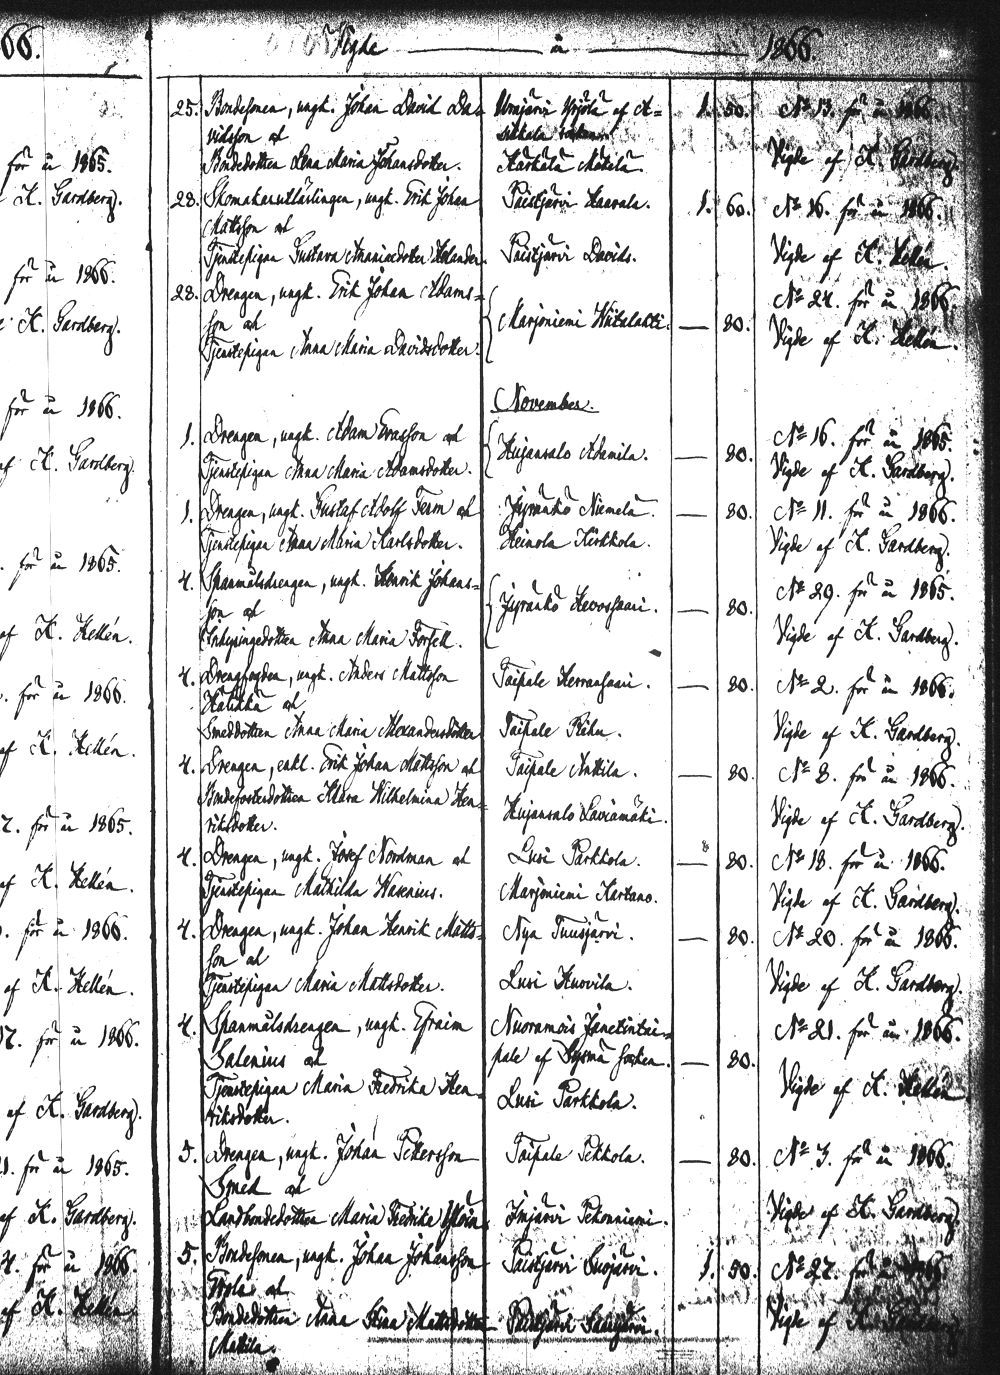 66. Vigde år 1866.
för år 1865.
K. Gardberg.
för år 1866.
K. Gardberg.
för år 1866.
af K. Gardberg.
för år 1865.
af K. Hellén.
för år 1866.
af K. Hellén.
för år 1865.
af K. Hellén.
för år 1866.
af K. Hellén.
17. för år 1866.
af K. Gardberg.
för år 1865.
af K. Gardberg.
för år 1866.
af K. Hellén
25. Bondesonen, ungk. Johan David Da- Urajärvi Yrjölä af A- 1. 50. No 13. för år 1866
vidsson och sikkala socken
Bondedottren Lena Maria Johansdotter. Karkala Mäkelä. Vigde af K. Gardberg.
28. Skomakarelärlingen, ungk. Erik Johan Paistjärvi Haarala. 1. 60. No 16. för år 1866.
Mattsson och
Tjenstepigan Gustava Ananiædotter Helander. Paistjärvi Davids. Vigde af K. Hellén.
28. Drengen, ungk. Erik Johan Adams- No 24. för år 1866.
son och Marjoniemi Hiitalahti. — 80.
Tjenstepigan Anna Maria Davidsdotter. Vigde af K. Hellén.
November.
1. Drengen, ungk. Adam Ersson och No 16. för år 1865.
Hujansalo Adamila. — 80.
Tjenstepigan Anna Maria Adamsdotter. Vigde af K. Gardberg.
1. Drengen, ungk. Gustaf Adolf Tenn och Jyränkö Niemelä. — 80. No 11. för år 1866.
Tjenstepigan Anna Maria Karlsdotter. Heinola Kirkkola. Vigde af K. Gardberg.
4. Spanmålsdrengen, ungk. Henrik Johans- No 29. för år 1865.
son och Jyränkö Hevossaari. — 80.
Inhysingedottren Anna Maria Forsell. Vigde af K. Gardberg.
4. Drengfogden, ungk. Anders Mattsson Taipale Herransaari. — 80. No 2. för år 1866.
Halikka och
Smeddottren Anna Maria Alexandersdotter Taipale Räha. Vigde af K. Gardberg.
4. Drengen, enkl. Erik Johan Mattsson och Taipale Anttila. — 80. No 8. för år 1866.
Bondefosterdottren Klara Wilhelmina Hen- Hujansalo Laviamäki. Vigde af K. Gardberg.
riksdotter.
4. Drengen, ungk. Josef Nordman och Lusi Parkkola. — 80. No 18. för år 1866.
Tjenstepigan Mathilda Wasenius. Marjoniemi Kartano. Vigde af K. Gardberg.
4. Drengen, ungk. Johan Henrik Matts- Nya Tuusjärvi. — 80. No 20. för år 1866.
son och
Tjenstepigan Maria Mattsdotter. Lusi Huovila. Vigde af K. Gardberg.
4. Spanmålsdrengen, ungk. Efraim Nuoramois Janetintai- No 21. för år 1866.
Salenius och pale af Sysmä socken. — 80.
Tjenstepigan Maria Fredrika Hen- Lusi Parkkola. Vigde af K. Hellén
riksdotter.
5. Drengen, ungk. Johan Pettersson Taipale Pekkola. — 80. No 3. för år 1866.
Smed och
Landbondedottren Maria Fredrika Imjärvi Pekonniemi. Vigde af K. Gardberg.
5. Bondesonen, ungk. Johan Johansson Paistjärvi Suojärvi. 1. 50. No 27. för år 1866.
och
Bondedottren Anna Stina Mattsdotter Paistjärvi Vigde af K. Gardberg.
Mattila.